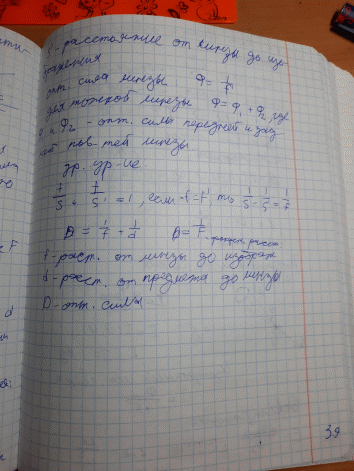 f - расстояние от линзы до изо-
бражения
опт. сила линзы Φ = 1/f'
для тонкой линзы Φ = Φ₁ + Φ₂, где
и Φ₂ - опт. силы передней и зад
ней пов-тей линзы
ур-ие
f'/s' + f/s = 1, если -f = f', то 1/s' - 1/s = 1/f'
D = 1/f + 1/d D = 1/F - фокусн. расст
f - расст. от линзы до изображ
d - расст. от предмета до линзы
D - опт. силы
39